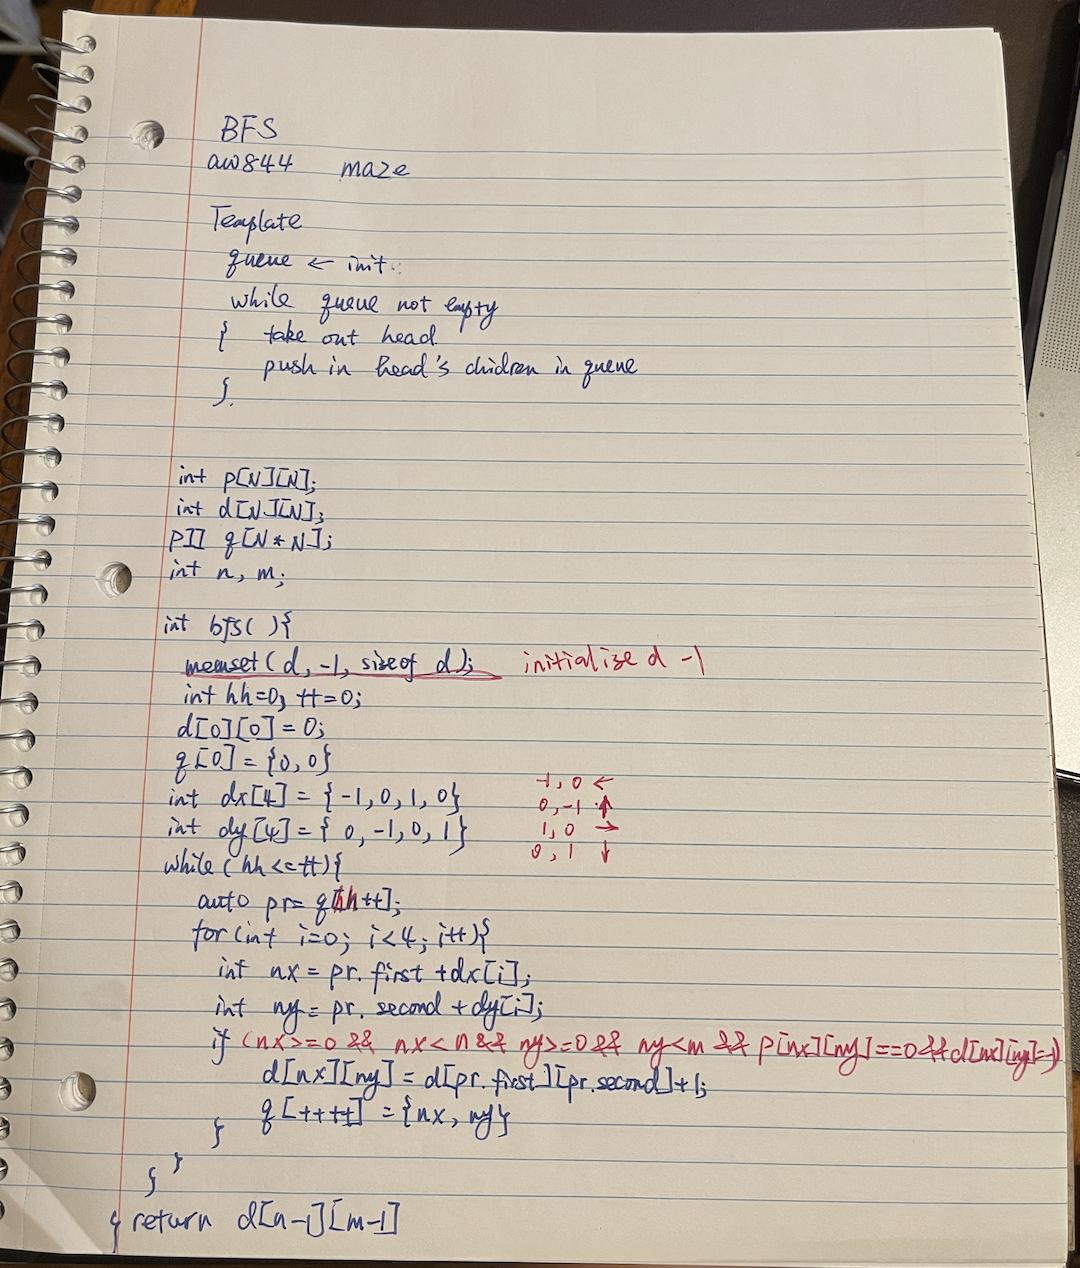 BFS
aw844 maze
Template
queue ← init.
while queue not empty
{ take out head
push in head's chidren in queue
}.
int p[N][N];
int d[N][N];
PII q[N*N];
int n, m;
int bfs( ){
memset(d, -1, sizeof d); initialise d -1
int hh=0, tt=0;
d[0][0] = 0;
q[0] = {0,0}
-1, 0 ←
int dx[4] = {-1,0,1,0} 0, -1 ↑
int dy[4] = { 0,-1,0,1} 1, 0 →
0, 1 ↓
while(hh<=tt){
auto pr= q[hh++];
for(int i=0; i<4; i++){
int nx = pr.first +dx[i];
int ny = pr.second +dy[i];
if (nx>=0 && nx<n && ny>=0 && ny<m && p[nx][ny]==0 && d[nx][ny]==-1)
d[nx][ny] = d[pr.first][pr.second]+1;
q[++tt] = {nx, ny}
}
}
}
{ return d[n-1][m-1]